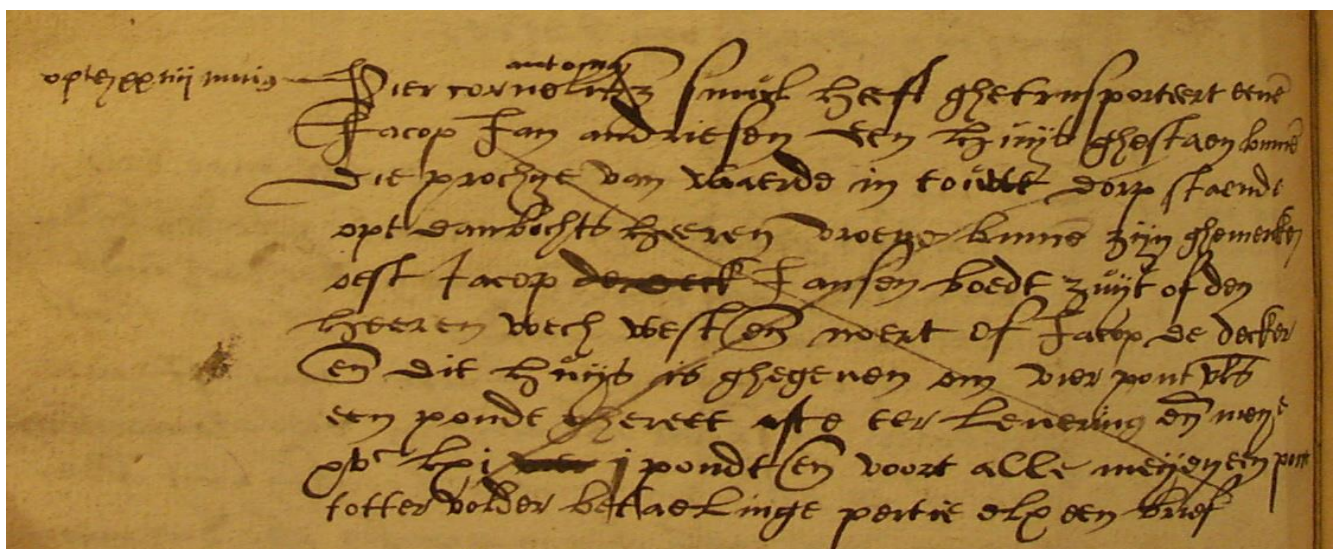 opten xxiiij meije
antonis
Pier cornelisz smijt heeft ghetrnsporteert eene
Jacop Jan andriesen een huijs ghestaen binne
die prochye van waerde in touwt dorp staende
opt dambochts heeren vroene binne zijn ghemerken
oest Jacop Jansen boedt zuijt of den
heeren wech west en noert of Jacop de decker
en dit huijs is ghegeven om vier pont vls
een pondt ghereet ofte ter levering en meye
xvc lxi j pondt en voort alle meijen een pont
totter volder betaelinge pertie elx een brief